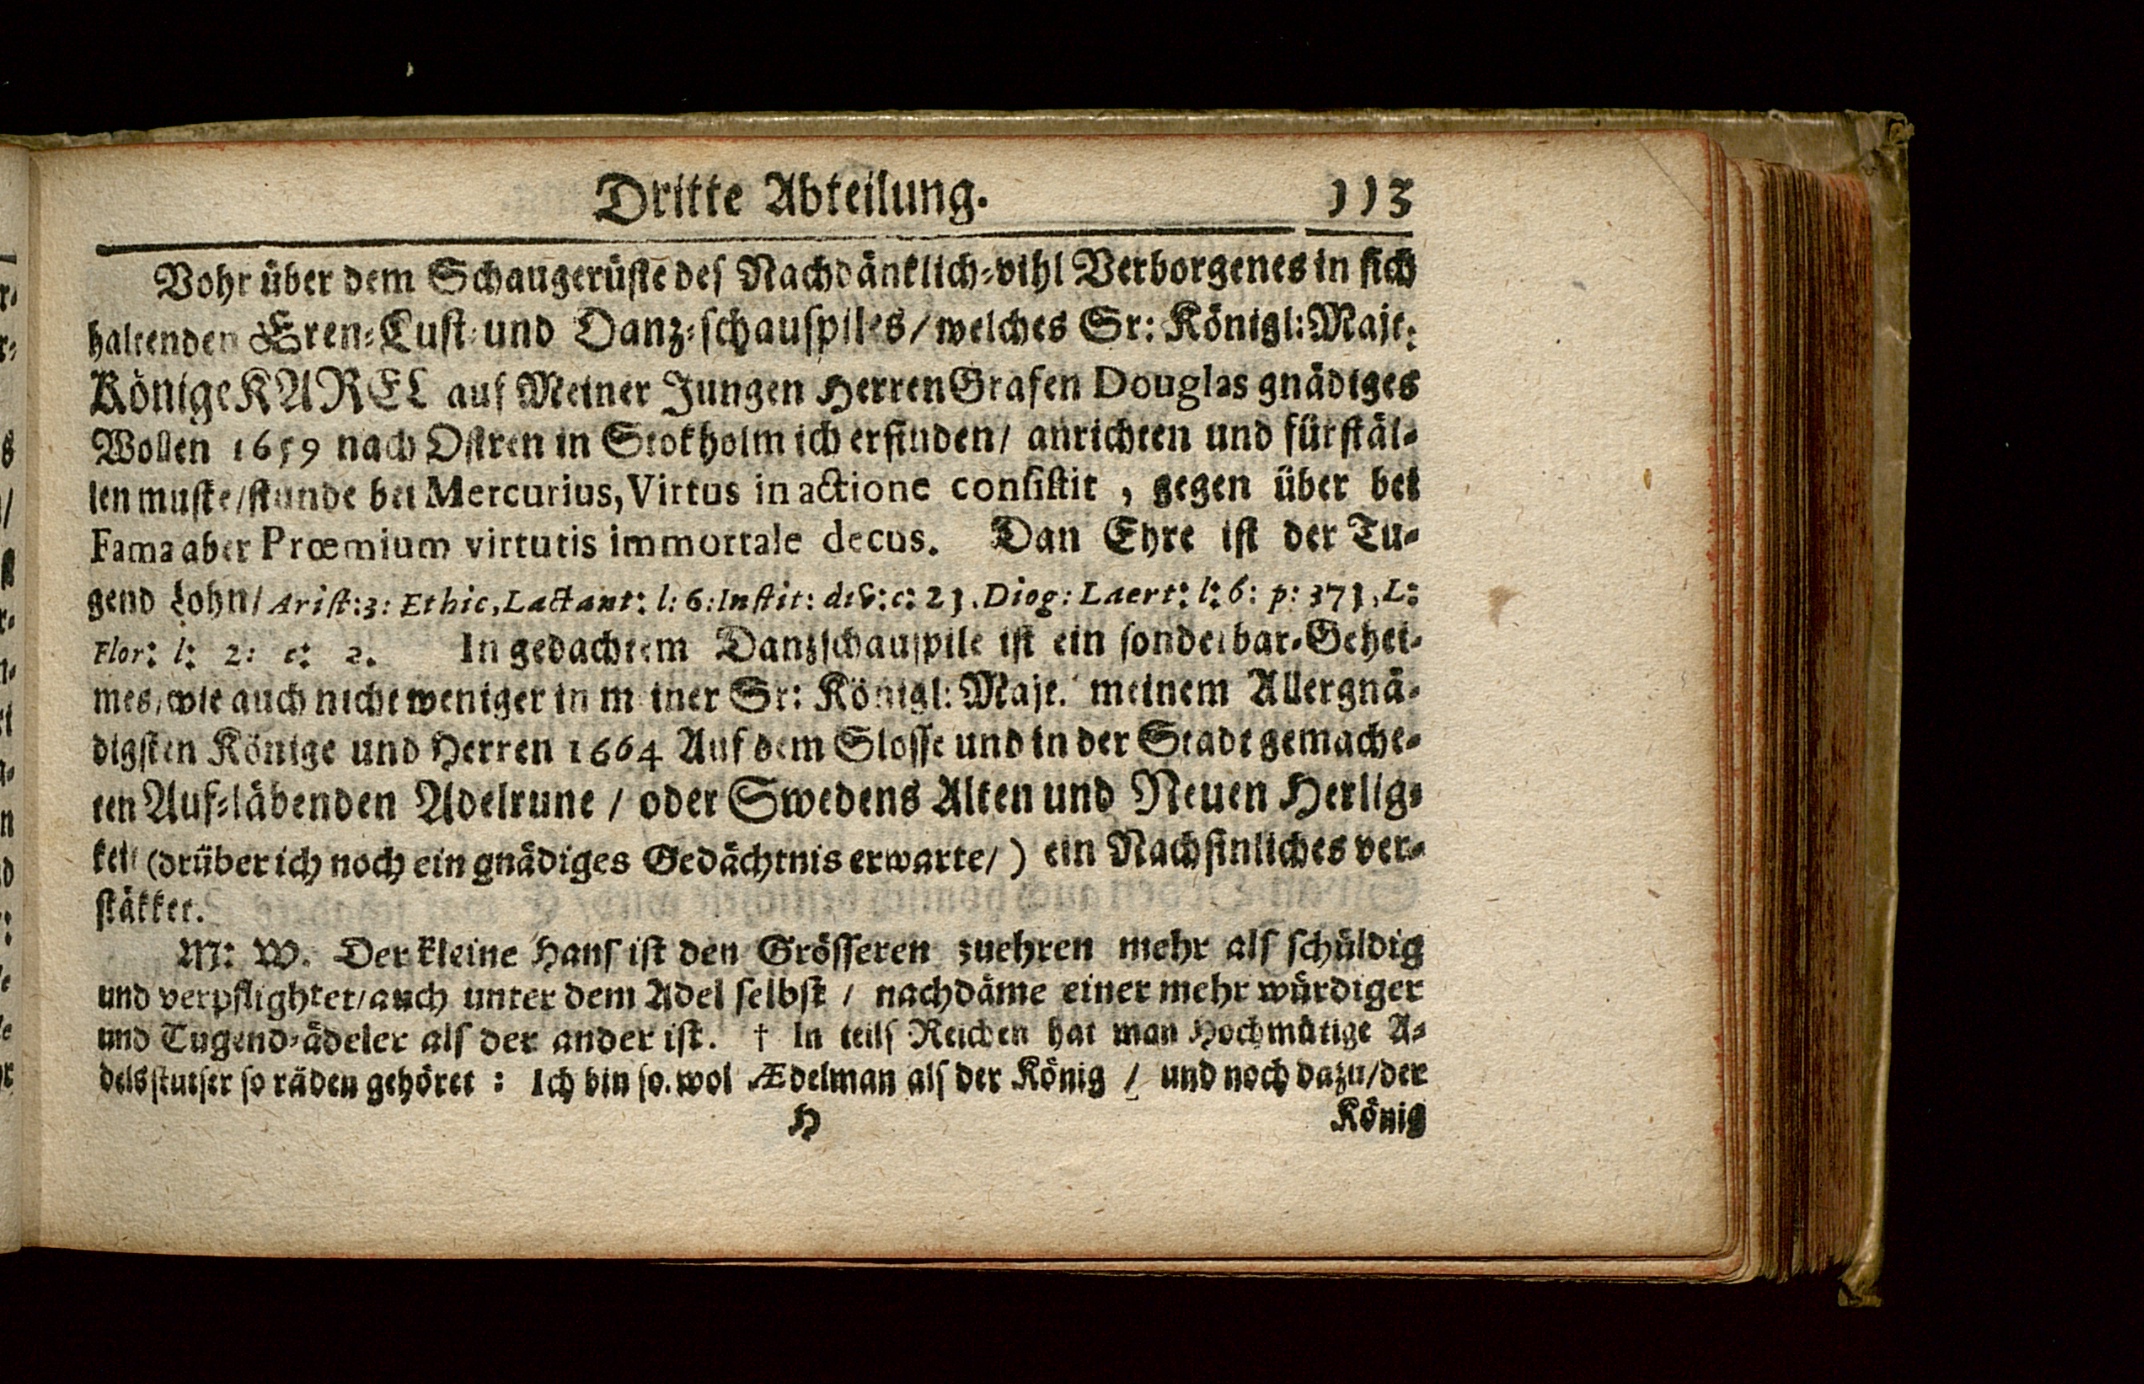 Dritte Abteilung. 113
Vohr über dem Schaugerüste des Nachdänklich-vihl Verborgenes in sich
haltenden Eren-Lust-und Danz-schauspiles/welches Sr: Königl: Majt:
Könige KAREL auf Meiner Jungen Herren Grafen Douglas gnädiges
Wollen 1659 nach Ostren in Stokholm ich erfinden/ anrichten und fürstäl-
len muste/stunde bei Mercurius, Virtus in actione consistit, gegen über bei
Fama aber Prœmium virtutis immortale decus. Dan Ehre ist der Tu-
gend Lohn/ Arist:3: Ethic, Lactant: l: 6: Instit: div: c: 23. Diog: Laert: l: 6: p: 373, L:
Flor: l: 2: c: 2. In gedachtem Danzschauspile ist ein sonderbar-Gehei-
mes, wie auch nicht weniger in meiner Sr: Königl: Majt. meinem Allergnä-
digsten Könige und Herren 1664 Auf dem Slosse und in der Stadt gemacht-
ten Auf-läbenden Adelrune / oder Swedens Alten und Neuen Herlig-
keit (drüber ich noch ein gnädiges Gedächtnis erwarte/) ein Nachsinliches ver-
stäkket.
M: W. Der kleine Hans ist den Grösseren zuehren mehr als schüldig
und verpflightet/auch unter dem Adel selbst / nachdäme einer mehr würdiger
und Tugend-ädeler als der ander ist. † In teils Reichen hat man Hochmütige A-
delsstutser so räden gehöret : Ich bin so wol Ædelman als der König / und noch dazu/der
H König